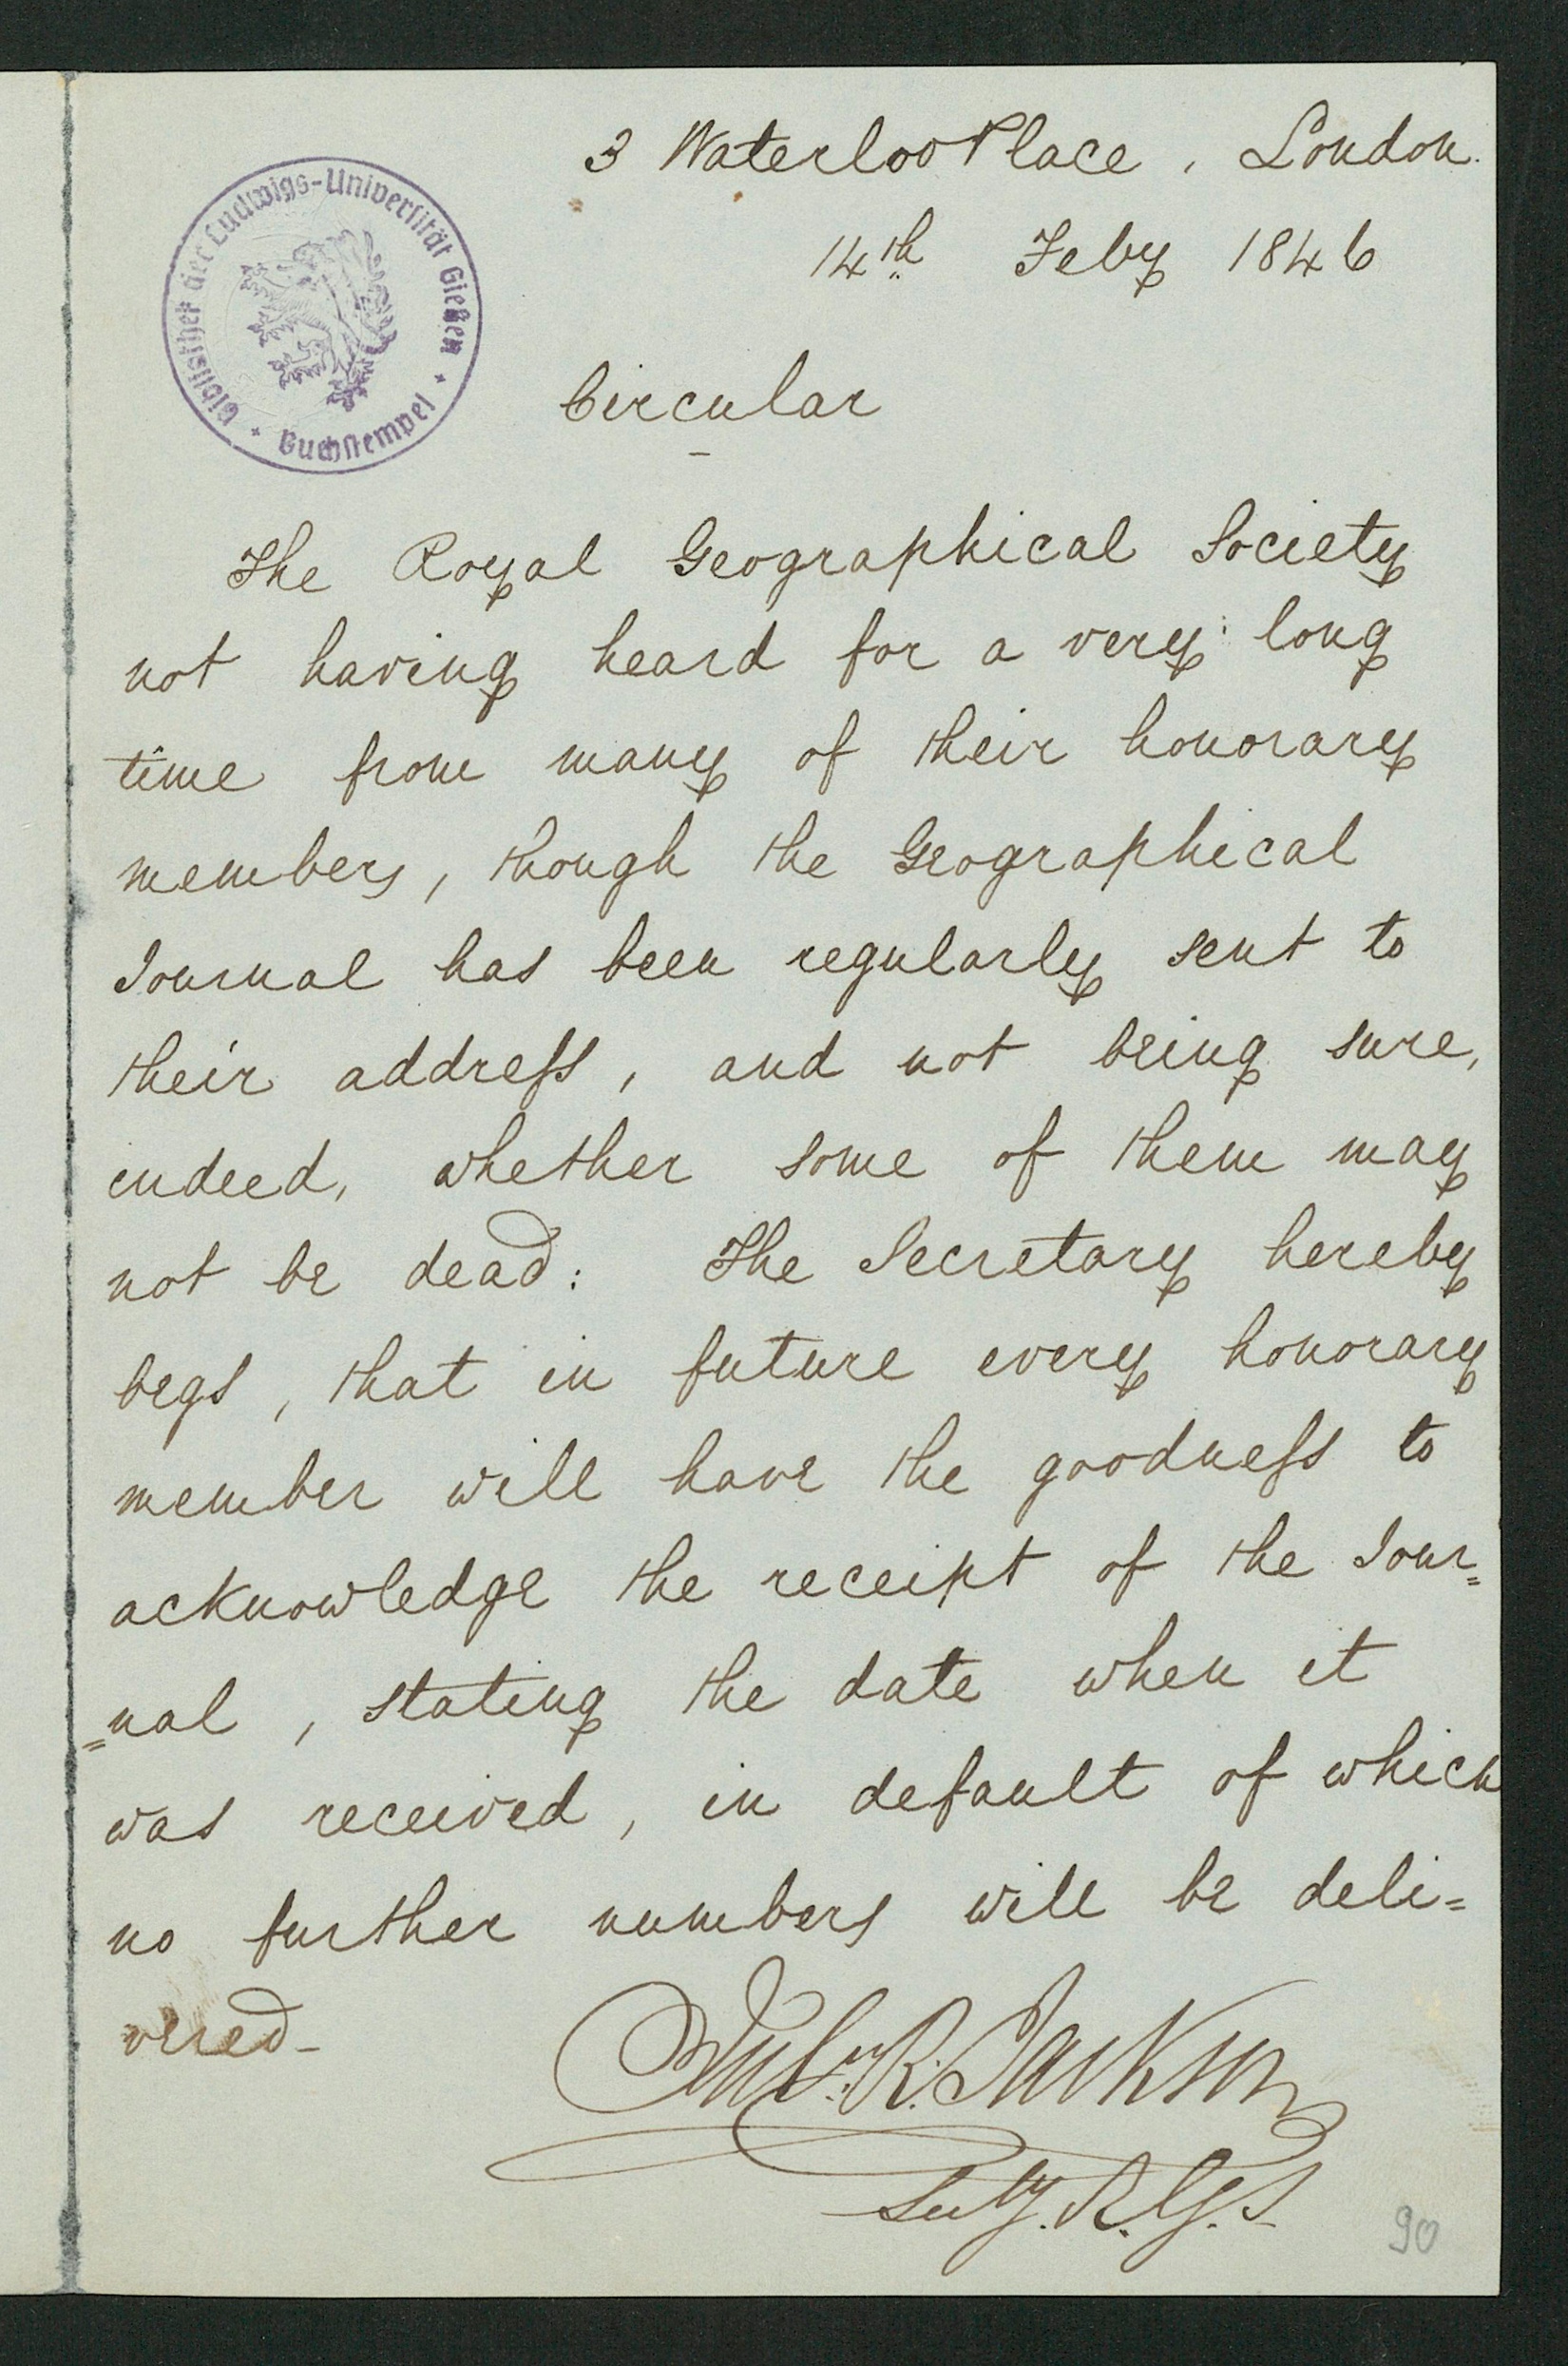 3 Waterloo Place, London.
14th Feby 1846
Bibliothek der Ludwigs-Universität Gießen
* Buchstempel *
Circular
The Royal Geographical Society
not having heard for a very long
time from many of their honorary
members, though the Geographical
Journal has been regularly sent to
their addreſs, and not being sure,
indeed, whether some of them may
not be dead: The Secretary hereby
begs, that in future every honorary
member will have the goodneſs to
acknowledge the receipt of the Jour=
=nal, stating the date when it
was received, in default of which
no further numbers will be deli=
vered-
R. Jackson
Secty. R.G.S.
90